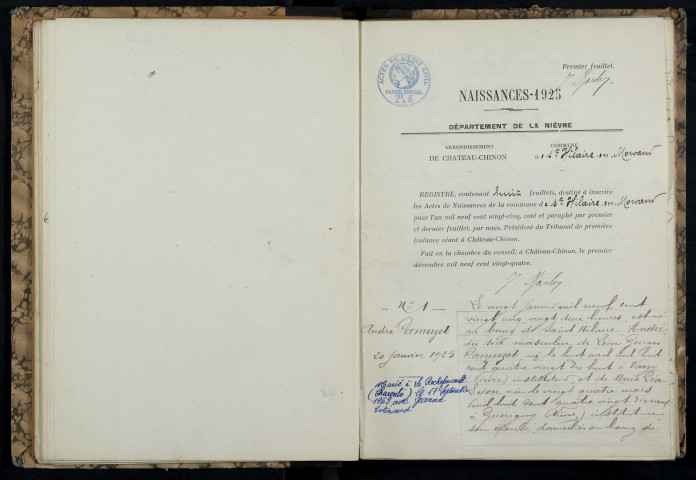 Premier feuillet.
ACTES DE L'ETAT CIVIL
PAPIER SPECIAL
NAISSANCES-1925
DÉPARTEMENT DE LA NIÈVRE
ARRONDISSEMENT
DE CHATEAU-CHINON
COMMUNE
de St Hilaire en Morvand
REGISTRE, contenant feuillets, destiné à inscrire
les Actes de Naissances de la commune de St Hilaire en Morvand
pour l'an mil neuf cent vingt-cinq, coté et paraphé par premier
et dernier feuillet, par nous, Président du Tribunal de première
instance séant à Château-Chinon.
Fait en la chambre du conseil, à Château-Chinon, le premier
décembre mil neuf cent vingt-quatre.
N° 1
André
20 Janvier 1925
Marié à La Rochefoucauld
(Charente) le 17 Septembre
1949 avec Jeanne
Le vingt janvier mil neuf cent
vingt cinq, vingt deux heures, est né
au bourg de Saint Hilaire, André
du sexe masculin, de Léon Georges
né le huit avril mil huit
cent quatre vingt dix huit à
(Nièvre) instituteur et de
née le vingt quatre mars
mil huit cent quatre vingt dix neuf
à Guérigny (Nièvre) institutrice
son épouse, domiciliés au bourg de